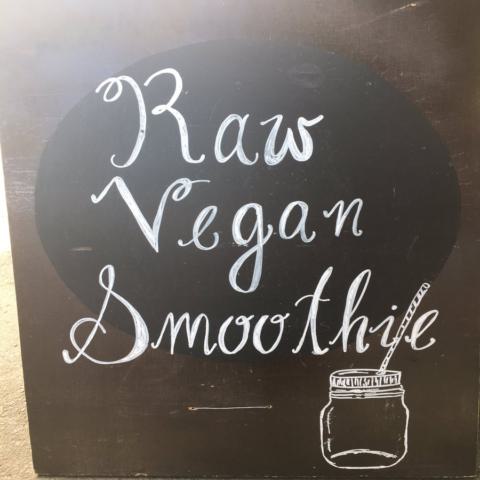 Raw
Vegan
Smoothie